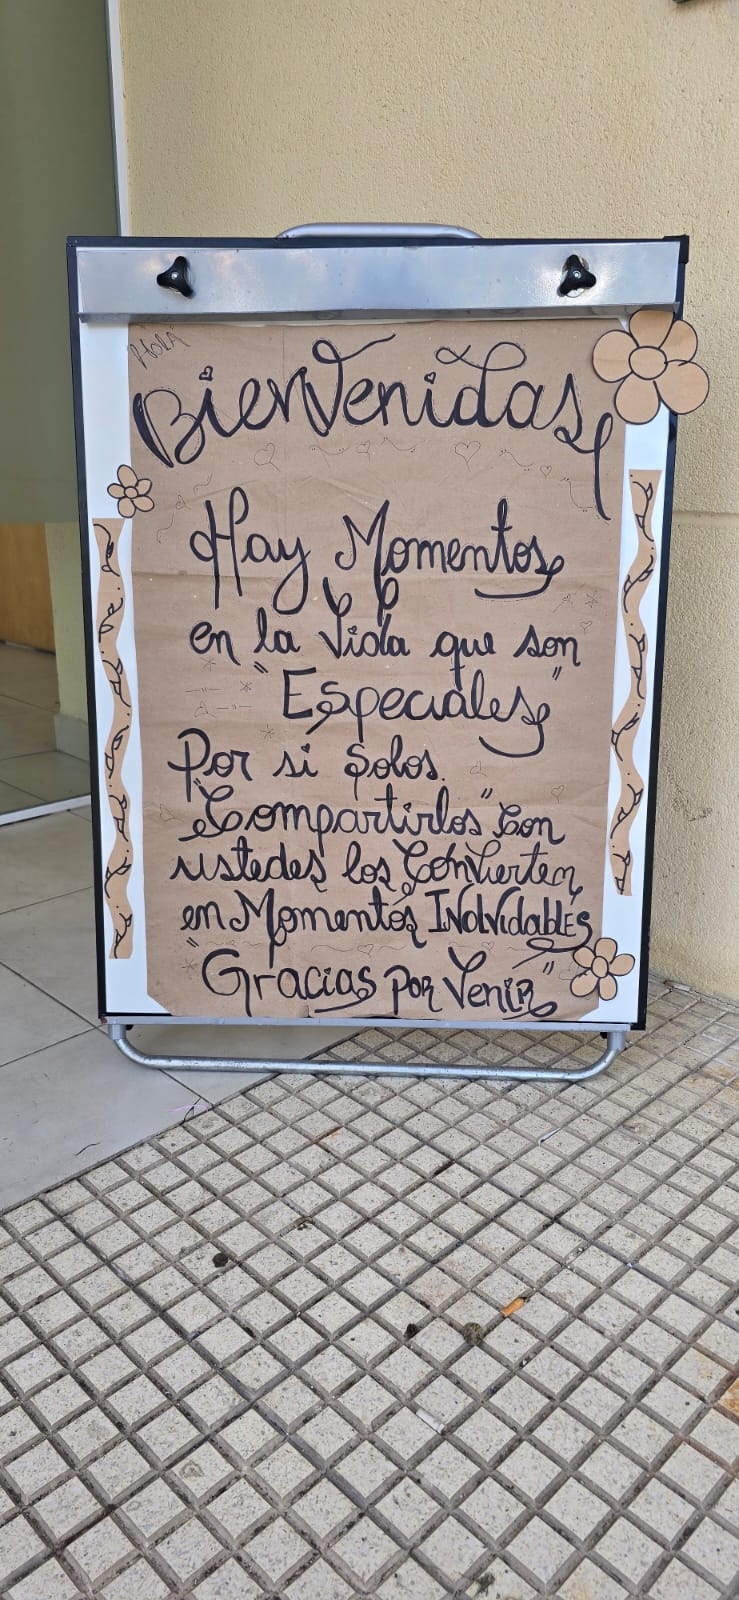 HOLA
Bienvenidas
Hay Momentos
en la Vida que son
"Especiales"
Por si solos.
"Compartirlos" Con
ustedes los Convierten
en Momentos INolvidables
"Gracias por Venir"